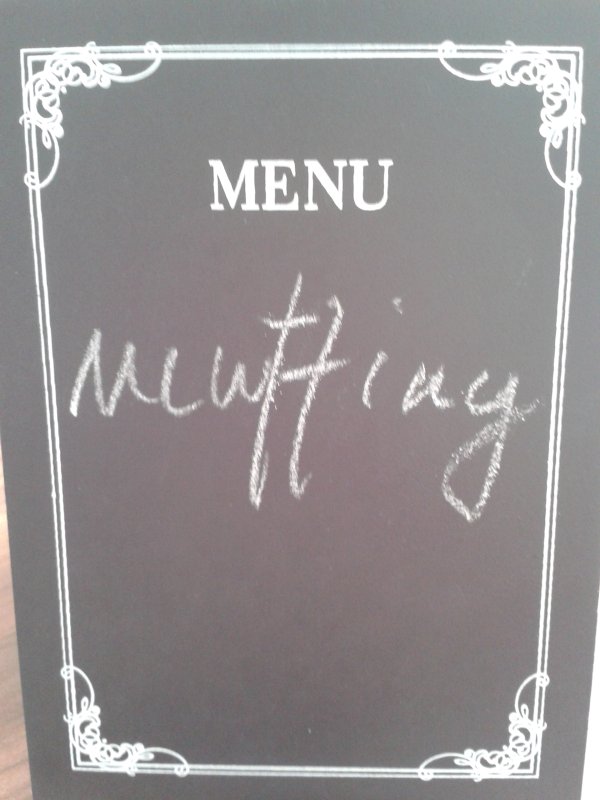 MENU
muffiny